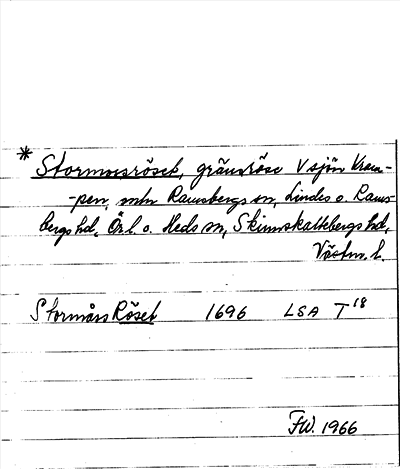 * Stormossröset, gränsröse V sjön Kram-
-pen, mln Ramsbergs sn, Lindes o. Rams-
bergs hd, Ör.l. o. Heds sn, Skinnskattebergs hd,
Västm. l.
Stormåss Röset 1696 LSA T 18
FW. 1966